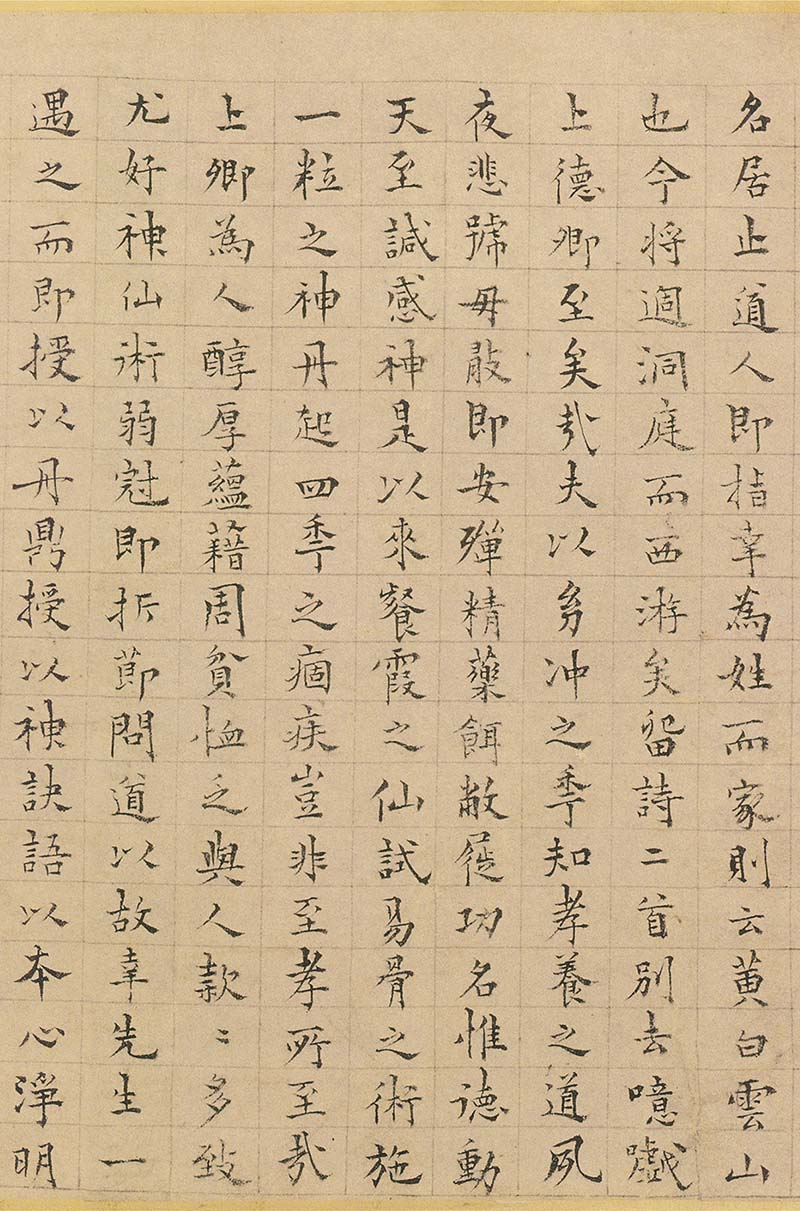 名居止道人即指幸為姓而家則云黄白雲山
也今将適洞庭而西游矣留詩二首别去噫戲
上德卿至矣哉夫以幼冲之秊知孝養之道夙
夜悲號毋敢即安殫精藥餌敝屣功名惟德動
天至諴感神是以來餐霞之仙試易骨之術施
一粒之神丹起四秊之痼疾豈非至孝所至哉
上卿為人醇厚蘊藉周貧恤乏與人款〻多致
尤好神仙術弱冠即折節問道以故幸先生一
遇之而即授以丹鼎授以神訣語以本心淨明